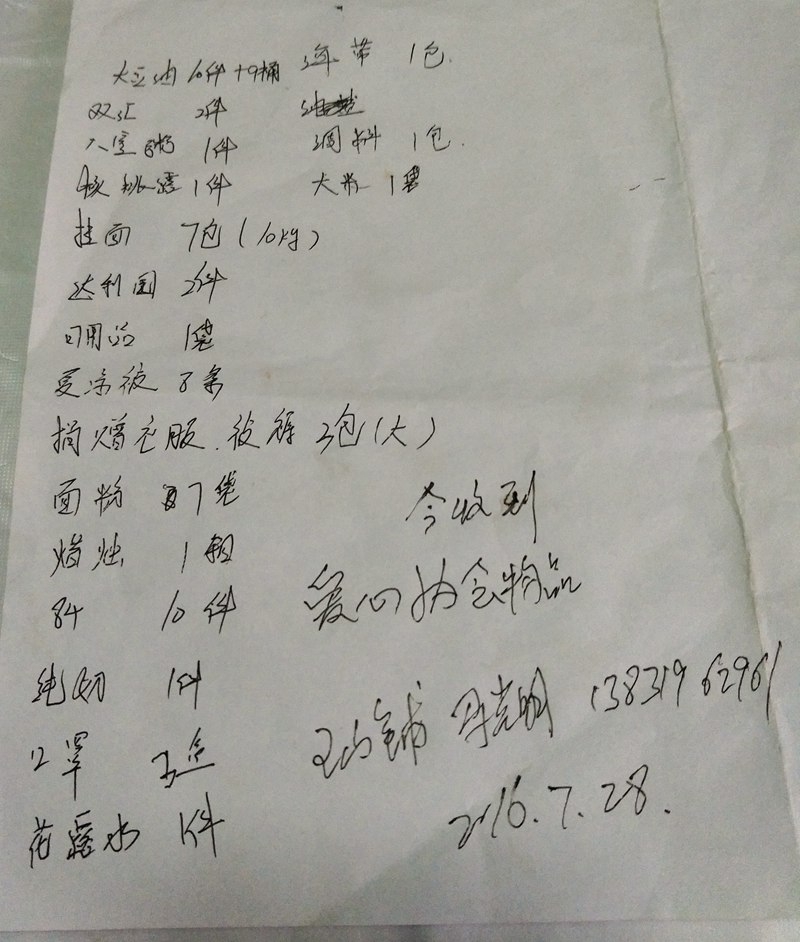 大豆油 10件+9桶 海带 1包.
双汇 2件
八宝粥 1件 调料 1包.
核桃露 1件 大米 1袋
挂面 7包(10kg)
达利园 2件
日用品 1袋
夏凉被 8条
捐赠衣服.被褥 3包(大)
面粉 7袋
蜡烛 1箱
84 10件
纯奶 1件
口罩 3盒
花露水 1件
今收到
爱心协会物品
王山铺 13831962961
2016.7.28.